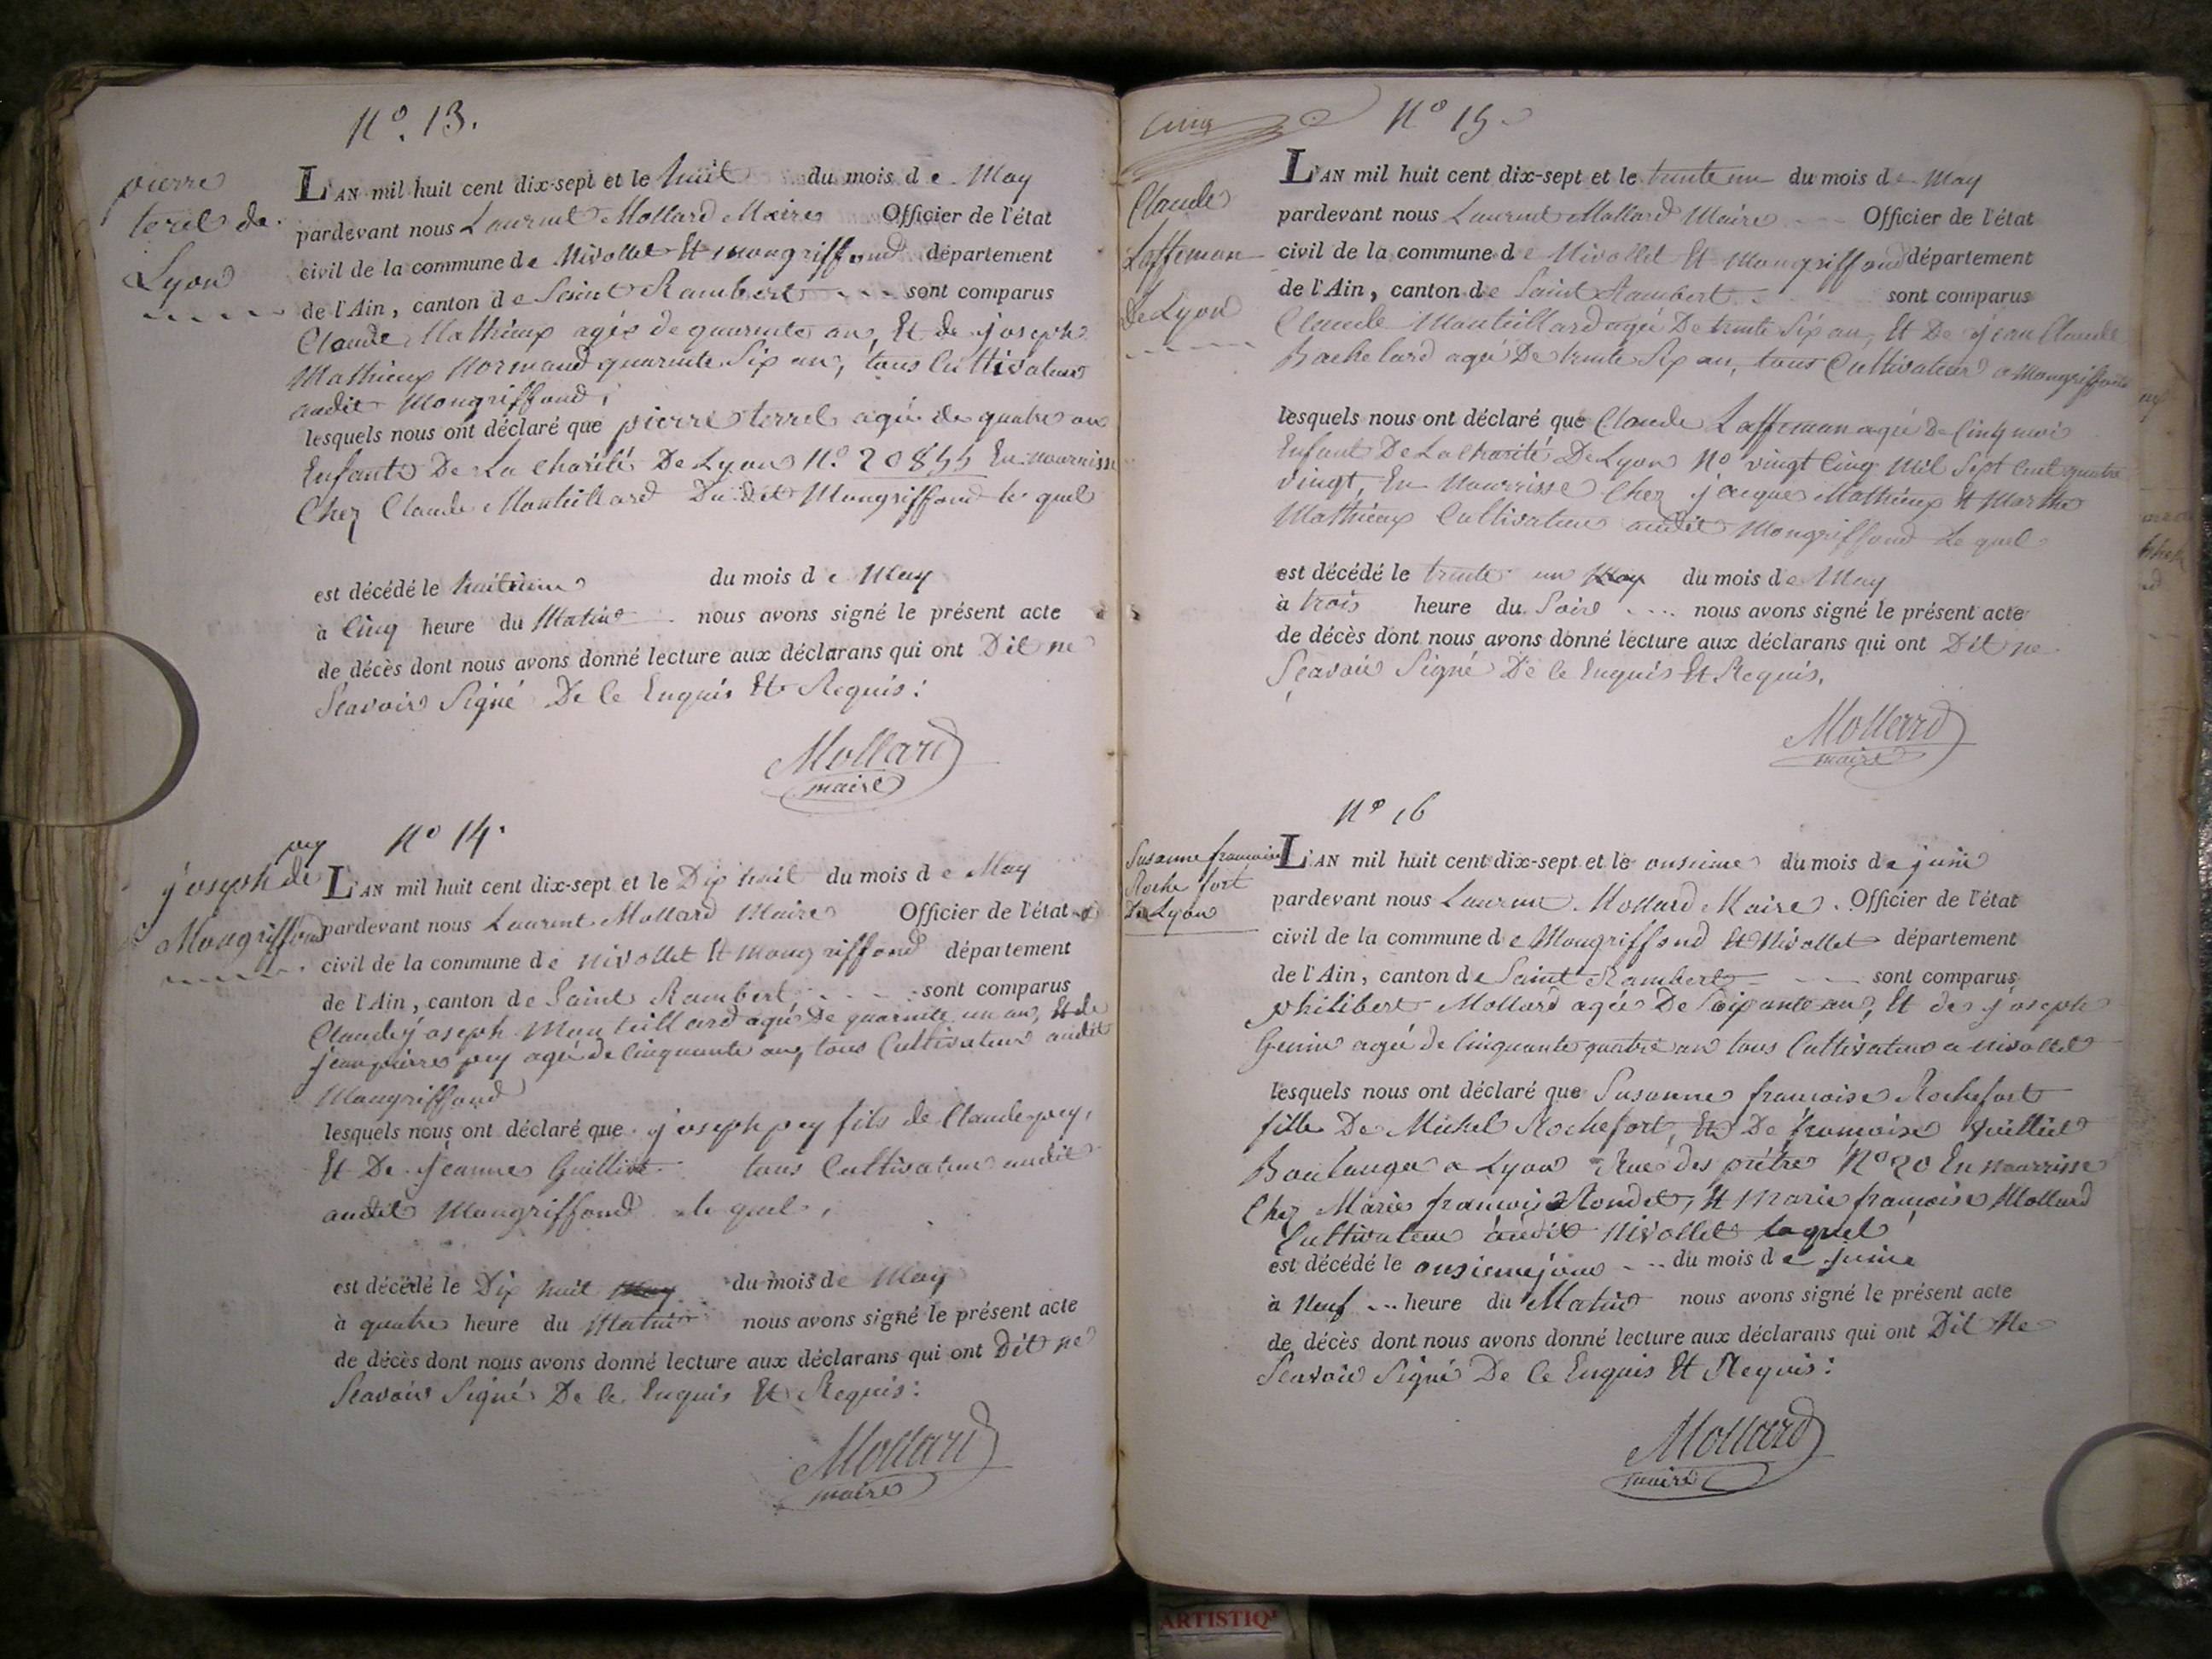 N.º 13.
pierre
terel de
Lyon
L'AN mil huit cent dix-sept et le huit du mois de May
pardevant nous Laurent Mollard Maire Officier de l'état
civil de la commune de Nivollet Et mongriffond département
de l'Ain, canton de Saint Rambert sont comparus
Claude Mathieux agés de quarente an, Et de joseph
Mathieux Normand quarente Six an, tous Cultivateur
audit Mongriffond;
lesquels nous ont déclaré que pierre terrel agée de quatre an
Enfants De La Charité De Lyon N.º 20855 En nourrisse
Chez Claude Montillard Du dit Mongriffond le quel
est décédé le huitieme du mois de May
à Cinq heure du Matin nous avons signé le présent acte
de décès dont nous avons donné lecture aux déclarans qui ont Dit ne
Seavoir Signé De Ce Enquis Et Requis:
Mollard
maire
N.º 14.
joseph pey
de
Mongriffond
L'AN mil huit cent dix-sept et le Dix huit du mois de May
pardevant nous Laurent Mollard Maire Officier de l'état
civil de la commune de nivollet Et mongriffond département
de l'Ain, canton de Saint Rambert, sont comparus
Claude joseph Montillard agé De quarente un an, Et de
jean pierre pey agée de Cinquante an, tous Cultivateur audit
Mongriffond
lesquels nous ont déclaré que joseph pey fils de Claude pey,
Et De jeanne Guilliot tous Cultivateur audit
audit Mongriffond le quel,
est décédé le Dix huit May du mois de May
à quatre heure du Matin nous avons signé le présent acte
de décès dont nous avons donné lecture aux déclarans qui ont Dit ne
Seavoir Signé De Ce Enquis Et Requis:
Mollard
maire
Cinq
N.º 15.
Claude
Laffeman
De Lyon
L'AN mil huit cent dix-sept et le trente un du mois de May
pardevant nous Laurent Mollard Maire Officier de l'état
civil de la commune de Nivollet Et Mongriffond département
de l'Ain, canton de Saint Rambert sont comparus
Claude Montillard agée De trente Six an, Et De jean Claude
Bachelard agée De trente Six an, tous Cultivateur a Mongriffond
lesquels nous ont déclaré que Claude Laffeman agée De Cinq moi
Enfant De La Charité De Lyon Nº vingt Cinq Mil Sept Cent quatre
vingt, En Nourrisse Chez jacque Mathieux Et Marthe
Mathieux Cultivateur audit Mongriffond Le quel
est décédé le trente un May du mois de May
à trois heure du Soir nous avons signé le présent acte
de décès dont nous avons donné lecture aux déclarans qui ont Dit ne
Seavoir Signé De Ce Enquis Et Requis.
Mollard
maire
Nº 16
Susanne francoise
Roche fort
De Lyon
L'AN mil huit cent dix-sept et le onsieme du mois de juin
pardevant nous Laurent Mollard Maire. Officier de l'état
civil de la commune de Mongriffond Et Nivollet département
de l'Ain, canton de Saint Rambert sont comparus
philibert Mollard agée De Soixante an, Et de joseph
Genin agée de Cinquante quatre an tous Cultivateur a nivollet
lesquels nous ont déclaré que Susanne francoise Rochefort
fille De Michel Rochefort, Et De francoise
Boulanger a Lyon Rue des prêtre Nº 20 En nourrisse
Chez Marie francois Rondet, Et Marie francoise Mollard
Cultivateur audit Nivollet laquel
est décédé le onsieme jour du mois de juin
à Neuf heure du Matin nous avons signé le présent acte
de décès dont nous avons donné lecture aux déclarans qui ont Dit Ne
Seavoir Signé De Ce Enquis Et Requis:
Mollard
maire
ARTISTIQ